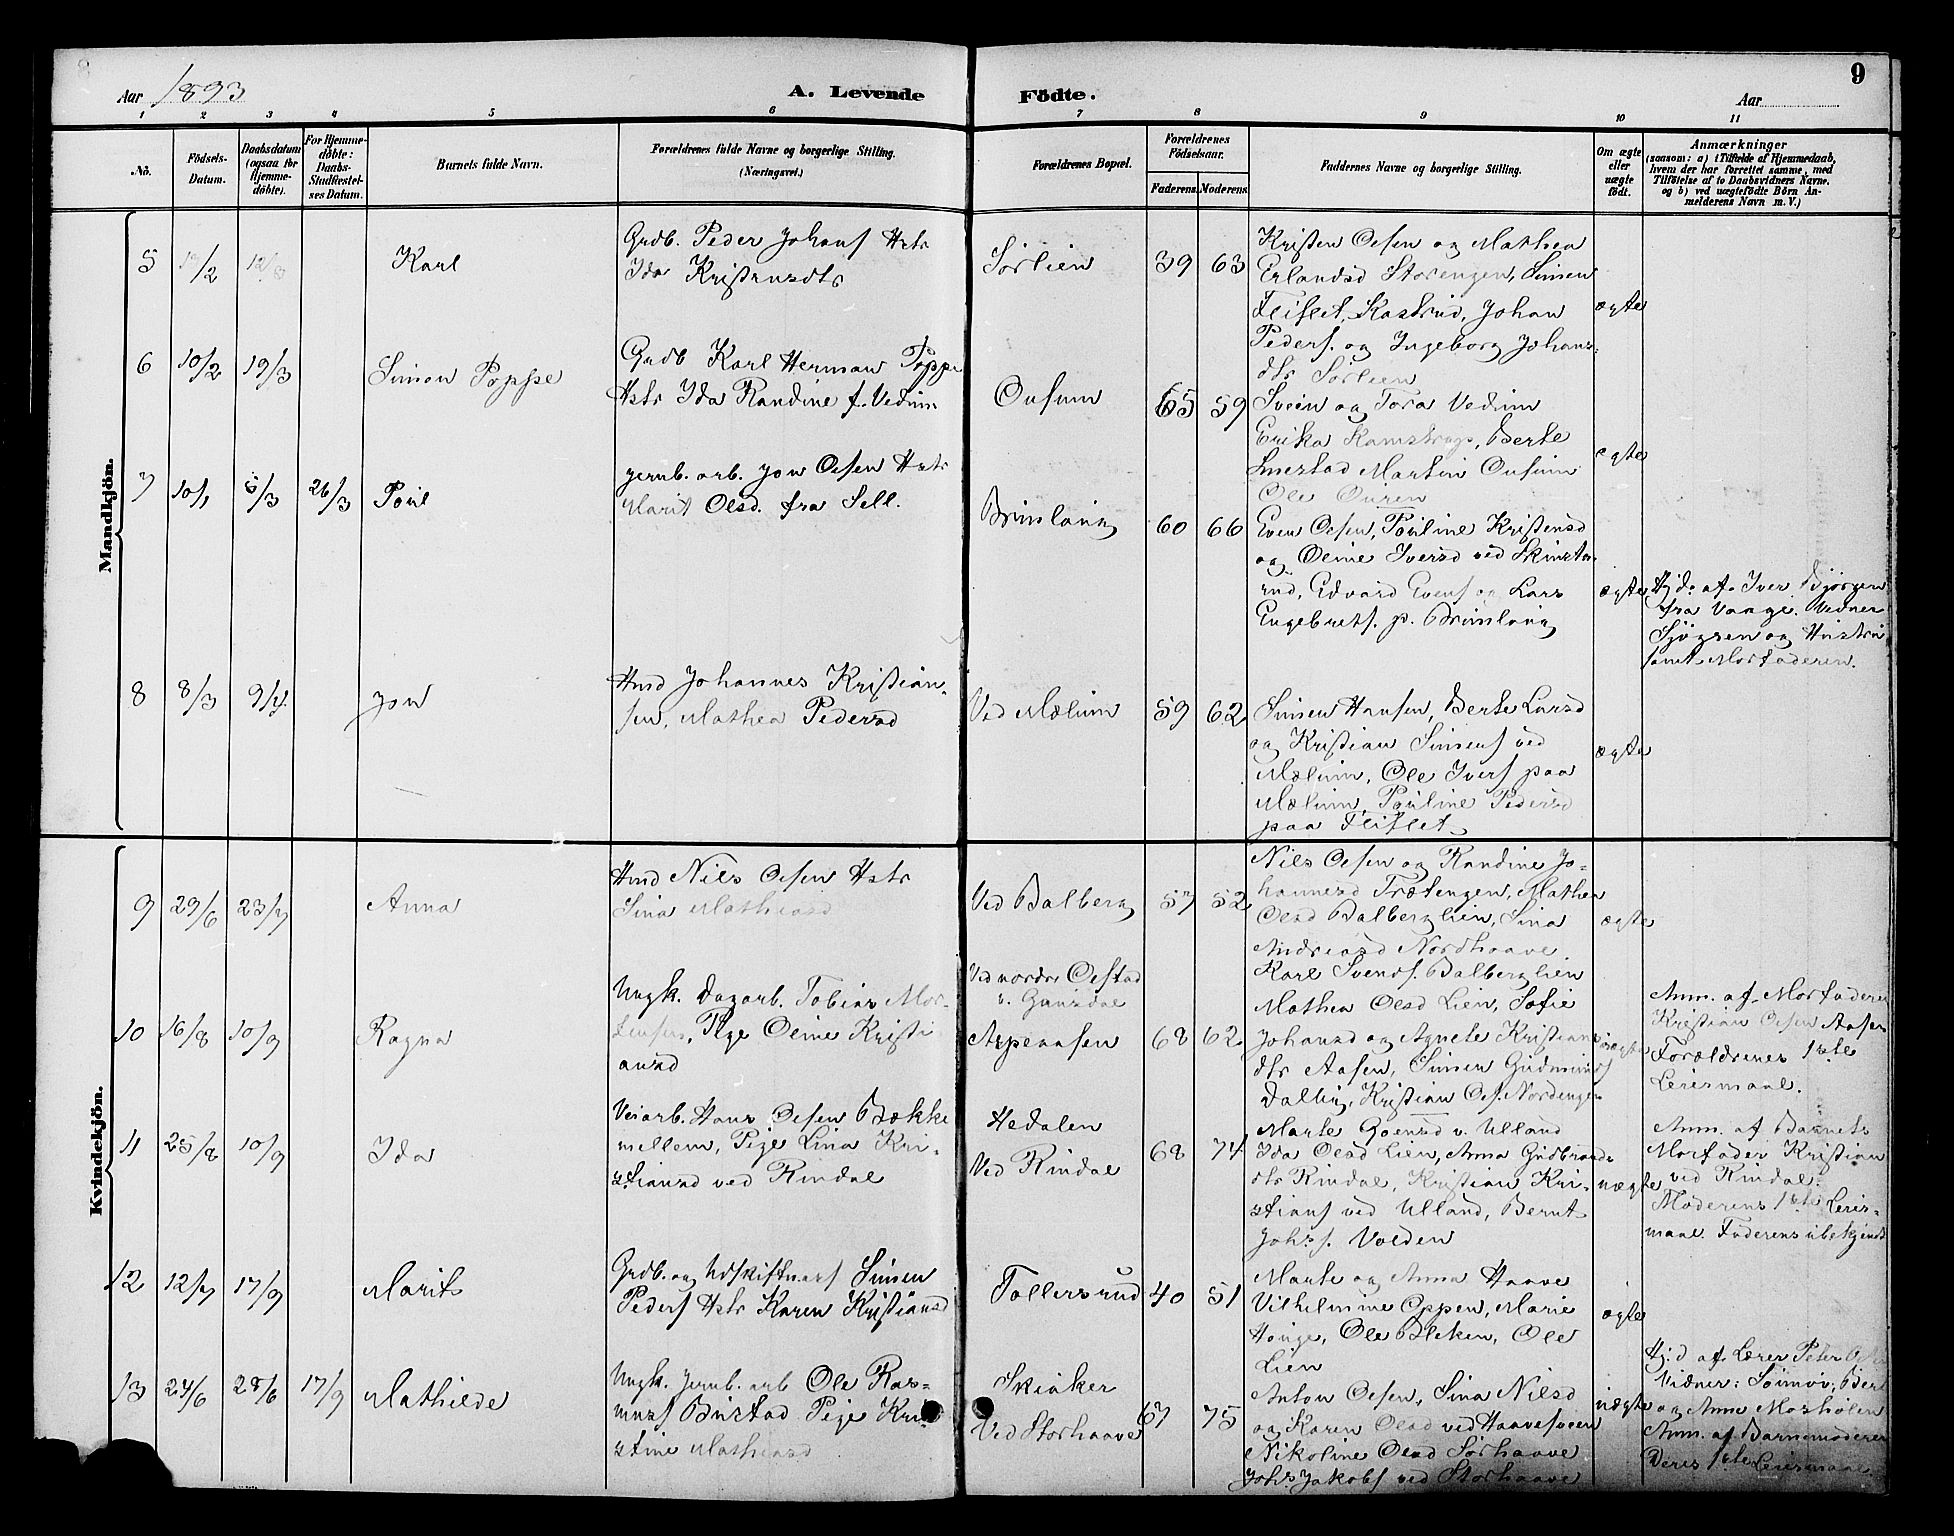 Aar 1893
A. Levende
Födte.
Aar
9
1 2 3 4 5 6 7 8 9 10 11
No.
Födsels-
Datum.
Daabsdatum
(ogsaa for
Hjemme-
döbte).
For Hjemme-
döbte:
Daabs-
Stadfæstel-
ses Datum.
Barnets fulde Navn.
Forældrenes fulde Navne og borgerlige Stilling.
(Næringsvei.)
Forældrenes Bopæl.
Forældrenes
Födselsaar.
Faderens. Moderens.
Faddernes Navne og borgerlige Stilling.
Om ægte
eller
uægte
födt.
Anmærkninger
(saasom: a) i Tilfælde af Hjemmedaab,
hvem der har forrettet samme, med
Tilföielse af to Daabsvidners Navne,
og b) ved uægtefödte Börn An-
melderens Navn m. V.)
Mandkjön.
5 /2 12/3 Karl
Grdb. Peder Johans Hstr
Ida Kristensdtr
Sörlien 39 63
Kristen Olsen og Mathea
Erlandsd Storengen, Simen
Fliflet, Kastrud, Johan
Peders. og Ingeborg Johans-
dtr Sörlien
ægte
6 10/2 19/3 Simon Poppe
Grdb Karl Herman Poppe
Hstr Ida Randine f. Vedum
Ousum 65 59
Svein og Tora Vedum
Erika Kamstrup, Berte
Smestad Martin Ousum
Ole Ouren
ægte
7 10/1 5/3 26/3 Poul
jernb. arb. Jon Olsen Hstr
Marit Olsd. fra Sell.
Brinslaug 60 66
Even Olsen, Pouline Kristensd
og Oline Iversd ved Skinstu-
rud, Edvard Evens og Lars
Engebrets. p. Brinslaug
ægte
Hjd. af Iver Björgen
fra Vaage. Vidner
Sjögren og Hustru
samt Morfaderen.
8 8/3 9/4 Jon
Hmd Johannes Kristian-
sen, Mathea Pedersd
Ved Mælum 59 62
Simen Hansen, Berte Larsd
og Kristian Simens ved
Mælum, Ole Ivers paa
Mælum, Pouline Pedersd
paa Fliflet
ægte
Kvindekjön.
9 29/6 23/7 Anna
Hmd Nils Olsen Hstr
Sina Mathiasd
Ved Balberg 57 52
Nils Olsen og Randine Jo-
hannesd Trætengen, Mathea
Olsd Balberglien, Sina
Andreasd Nordhaave
Karl Svends. Balberglien
ægte
10 16/8 10/9 Ragna
Ungk. Dagarb. Tobias Mor-
tensen, Pige Oline Kristi
ansd
Ved nordre Olstad
i. Gausdal
Arpeaasen 68 62
Mathea Olsd Lien, Sofie
Johansd og Agnete Kristians-
dtr Aasen, Simen Gudmunds
Dallin, Kristian Ols. Nordengen
uægte
Anm. af Morfaderen
Kristian Olsen Aasen
Forældrenes 1ste
Leiersmaal.
11 25/8 10/9 Ida
Veiarb. Hans Olsen Bække
mellem, Pige Lina Kri-
stiansd ved Rindal
Hedalen
Ved Rindal 68 74
Marte Goensd v. Ulland
Ida Olsd Lien, Anna Gudbrands-
dtr Rindal, Kristian Kri-
stians ved Ulland, Bernt
Johs s. Volden
uægte
Anm. af Barnets
Morfader Kristian
ved Rindal.
Moderens 1ste Leiers-
maal. Faderens ubekjendt
12 12/7 17/9 Marit
Grdb. og Udskiftnars Simen
Peders Hstr Karen Kristiansd
Tollersrud 40 51
Marte og Anna Haave
Vilhelmine Oppen, Marie
Houge, Ole Bleken, Ole
Lien
ægte
13 24/6 28/6 17/9 Mathilde
Ungk. jernb. arb Ole Ras-
muss Bustad Pige Kri-
stine Mathiasd
Skiaker
Ved Storhaave 67 75
Anton Olsen, Sina Nilsd
og Karen Olsd ved Haavesveen
Nikoline Olsd Sörhaave
Johs. Jakobs ved Storhaave
uægte
Hj.d af Lærer Peter
Vidner:
og Anne Mosholen
Anm. af Barnemoderen
Deres 1ste Leiersmaal.